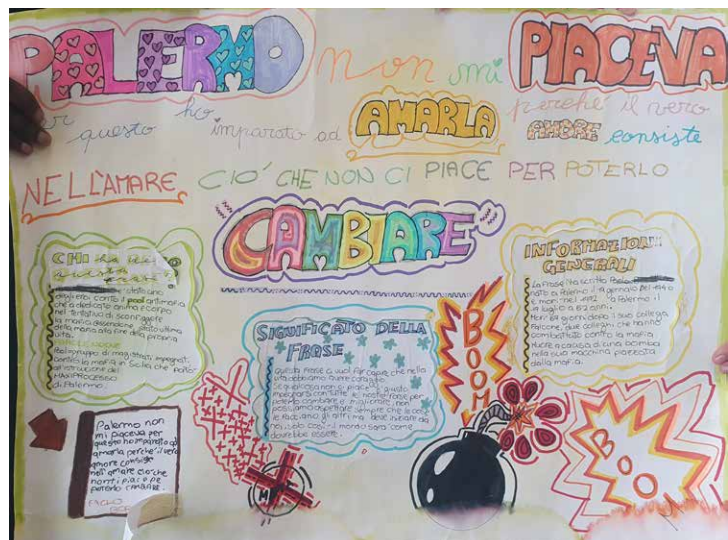 PALERMO non mi PIACEVA
per questo ho imparato ad AMARLA perché il vero AMORE consiste
NELL'AMARE CIO' CHE NON CI PIACE PER POTERLO
"CAMBIARE"
CHI ha detto
questa frase?
è stato uno
degli eroi contro il pool antimafia
che a dedicato anima e corpo
nel tentativo di sconfiggere
la mafia essendone stato vittima
della mafia alla fine della propria
vita.
Pool gruppo di magistrati impegnati
contro la mafia in Sicilia che portò
all'istruzione del
MAXIPROCESSO
di Palermo
INFORMAZIONI
GENERALI
La frase l'ha scritta
nato a Palermo il 19 gennaio del 1940
e morì nel 1992 a Palermo il
19 luglio a 52 anni.
Morì 57 giorni dopo il suo collega
Falcone, due colleghi che hanno
combattuto contro la mafia.
Muore a causa di una bomba
nella sua macchina piazzata
dalla mafia.
SIGNIFICATO DELLA
FRASE
questa frase ci vuol far capire che nella
vita dobbiamo avere coraggio
che se una cosa non ci piace è giusto
impegnarsi con tutte le nostre forze per
poterla cambiare e migliorare, non
possiamo aspettare sempre che le cose
le facciano gli altri ma deve iniziare da
noi, solo così il mondo sarà come
dovrebbe essere.
BOOM
Palermo non
mi piaceva per
questo ho imparato ad
amarla perché il vero
amore consiste
nell'amare ciò che
non ti piace per
poterlo cambiare.
PAOLO
BOO